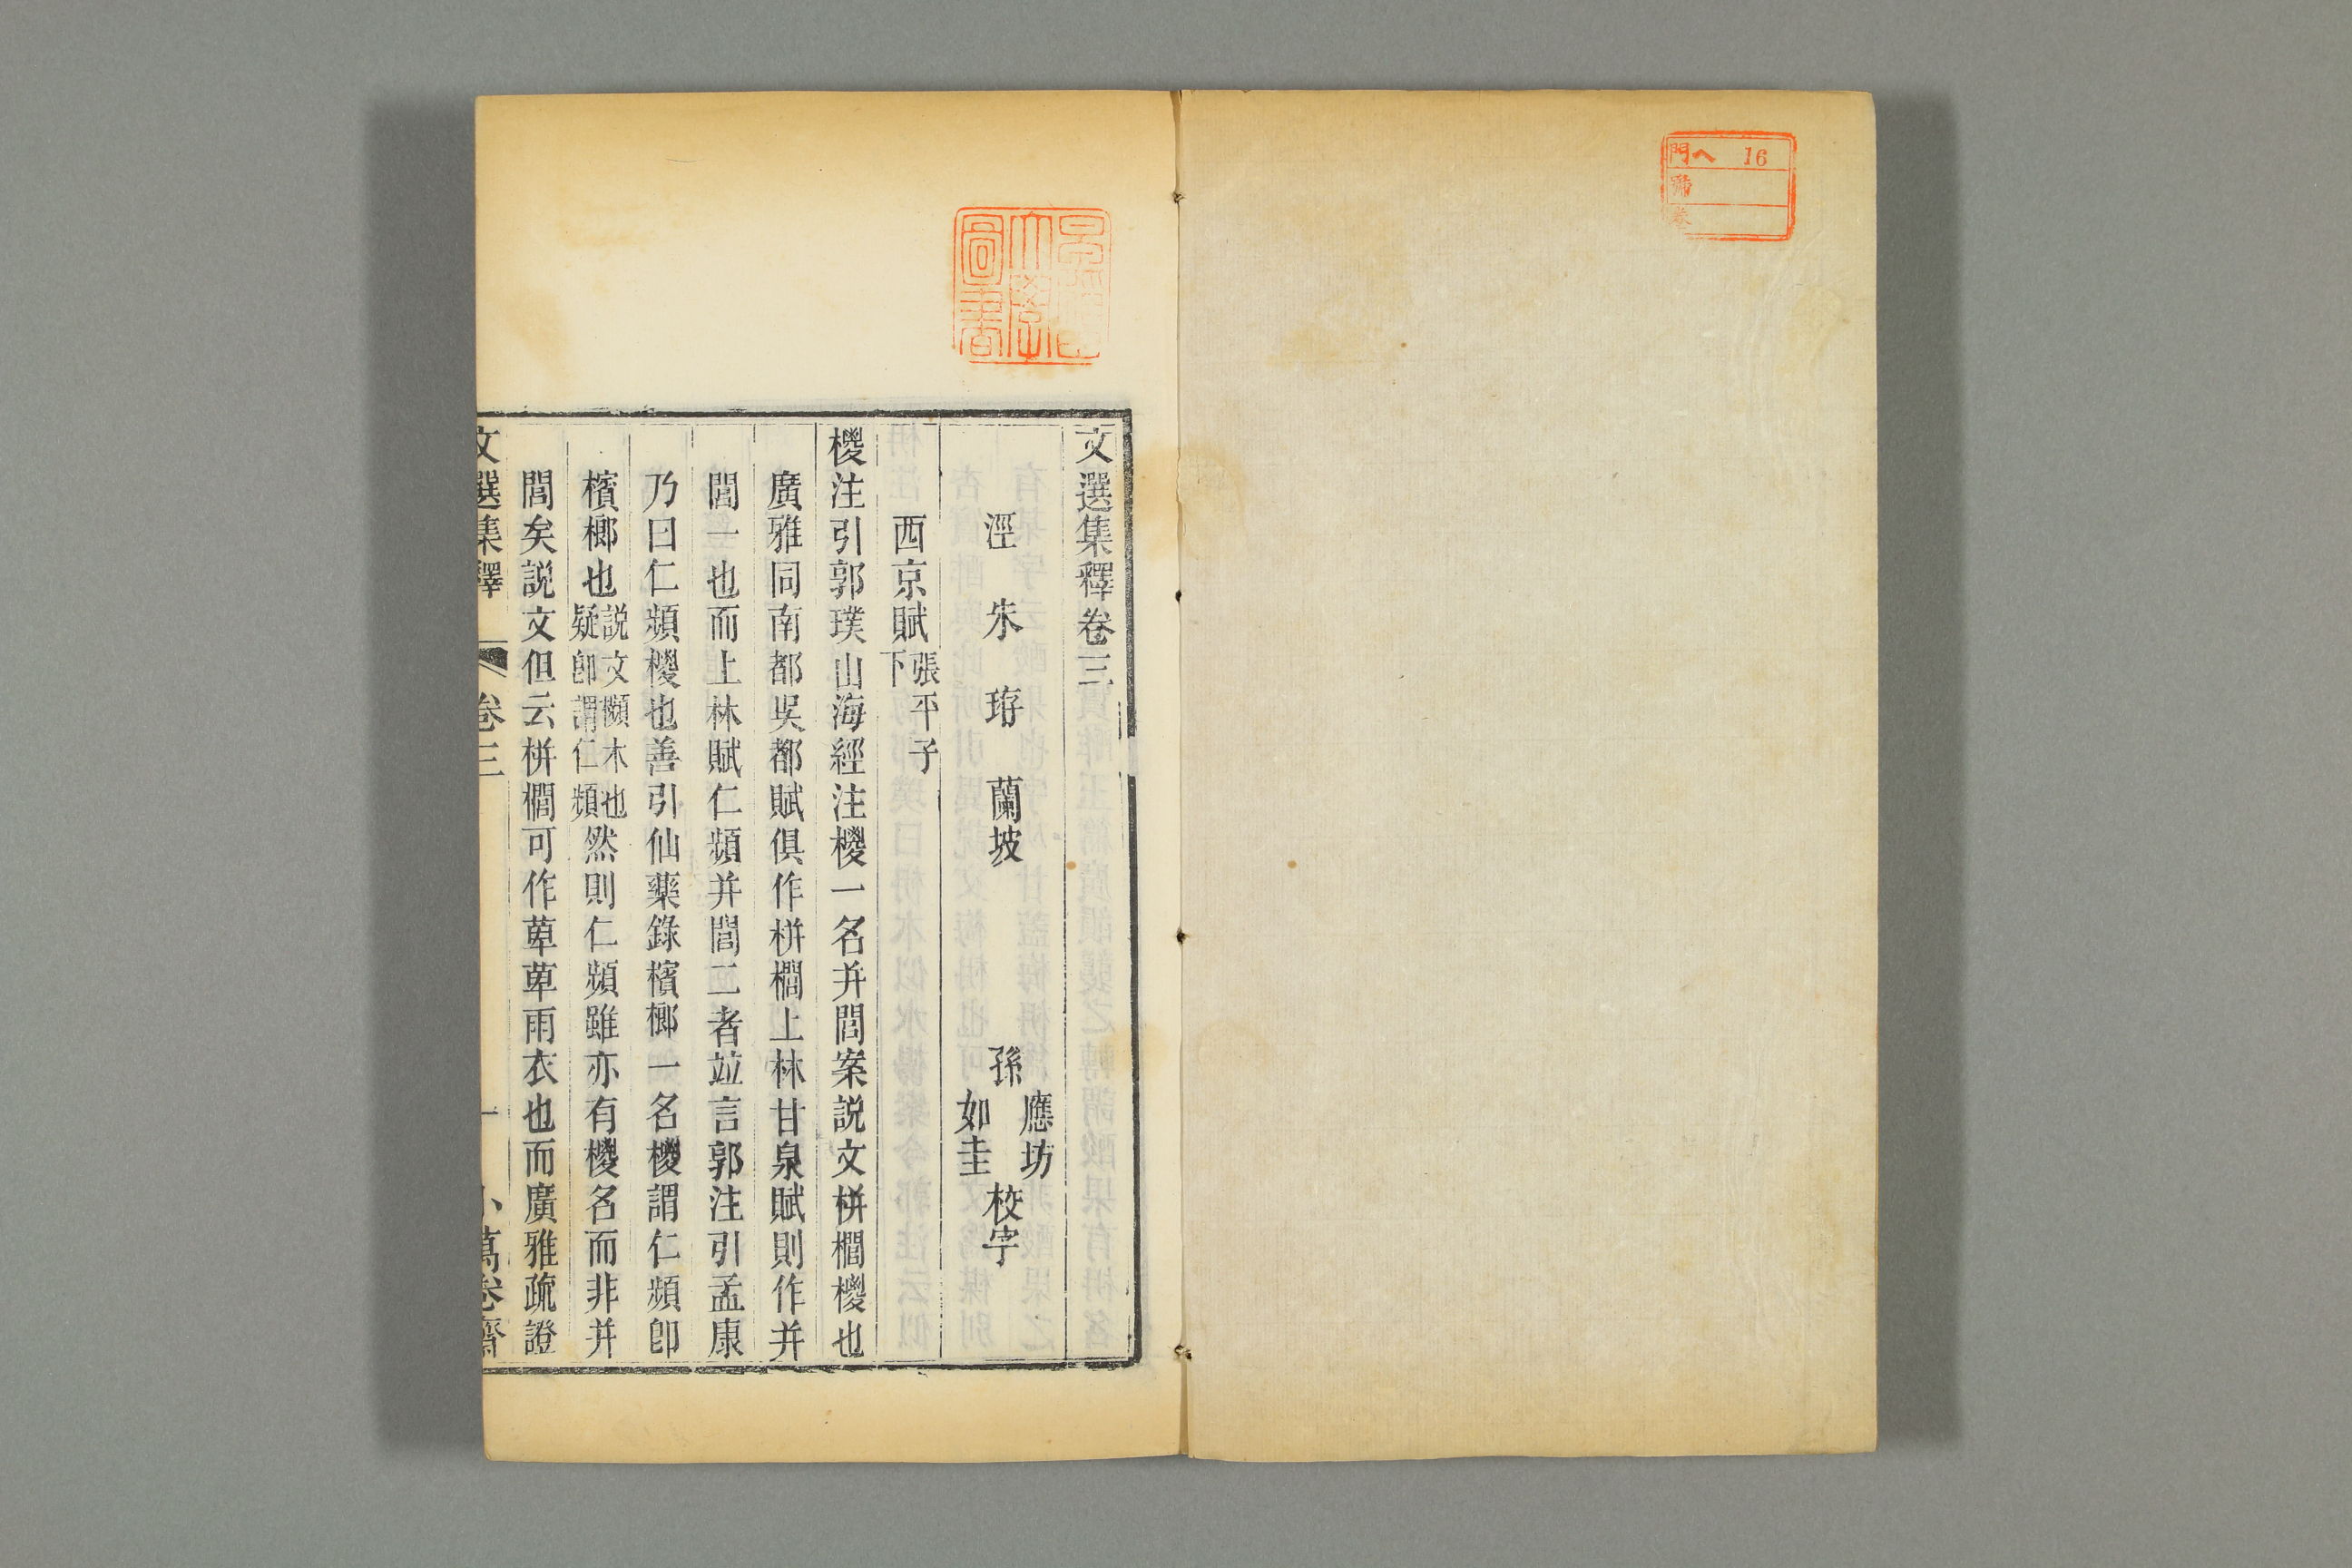 門ヘ 16
第
卷
文選集釋卷三
涇 朱 珔 蘭坡 孫 應坊 如圭 校字
西京賦張平子下
椶注引郭璞山海經注椶一名并閭案説文栟櫚椶也
廣雅同南都吳都賦俱作栟櫚上林甘泉賦則作并
閭一也而上林賦仁頻并閭二者竝言郭注引孟康
乃曰仁頻椶也善引仙藥錄檳榔一名椶謂仁頻卽
檳榔也説文櫇木也疑卽謂仁頻然則仁頻雖亦有椶名而非并
閭矣説文但云栟櫚可作萆萆雨衣也而廣雅疏證
文選集釋 卷三 一 小萬卷齋